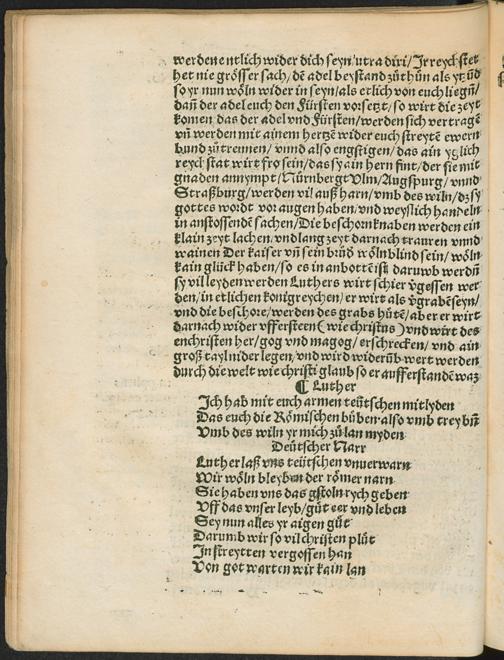 werden entlich wider dich seyn/utra diri/Jr reychstet
het nie grösser sach/dē adel beystand zůthůn als ytzūd
so yr nun wöln wider in seyn/als etlich von euch liegñ/
dañ der adel euch den Fürsten vorsetzt/so wirt die zeyt
komen das der adel vnd Fürsten/werden sich vertragē
vñ werden mit ainem hertzē wider euch streytē ewern
bund zůtrennen/vnnd also engstigen/das ain yglich
reyck stat wirt fro sein/das sy ain hern fint/der sie mit
gnaden annympt/Nürnbergk Vlm/Augspurg/vnnd
Straßburg/werden vil auß harn/vmb des wiln/dz sy
gottes wordt vor augen haben/vnd weyslich handeln
in anstossendē sachen/Die beschorn knaben werden ein
klain zeyt lachen/vnd lang zeyt darnach trauren vnnd
wainen Der kaiser vñ sein brůd wöln blind sein/wöln
kain glück haben/so es in anbottē ist darumb werdñ
sy vil leyden werden Luthers wirt schier v̄gessen wer
den/in etlichen konigreychen/er wirt als v̄grabē seyn/
vnd die beschorē/werden des grabs hůtē/aber er wirt
darnach wider vffersteen(wie christus)vnd wirt des
enchristen her/gog vnd magog/erschrecken/vnd ain
groß tayl nider legen/vnd wird widerūb wert werden
durch die welt wie christi glaub so er aufferstandē waz
¶ Luther
Jch hab mit euch armen teütschen mitlyden
Das euch die Römischen büben also vmb treybñ
Vmb des wiln yr mich zů lan myden
Deütscher Narr
Luther laß vns teütschen vnuerwarn
Wir wöln bleyben der römer narn
Sie haben vns das gstoln rych geben
Vff das vnser leyb/gůt eer vnd leben
Sey nun alles yr aigen gůt
Darumb wir so vil christen plůt
Jn streytten vergossen han
Von got warten wir kain lan